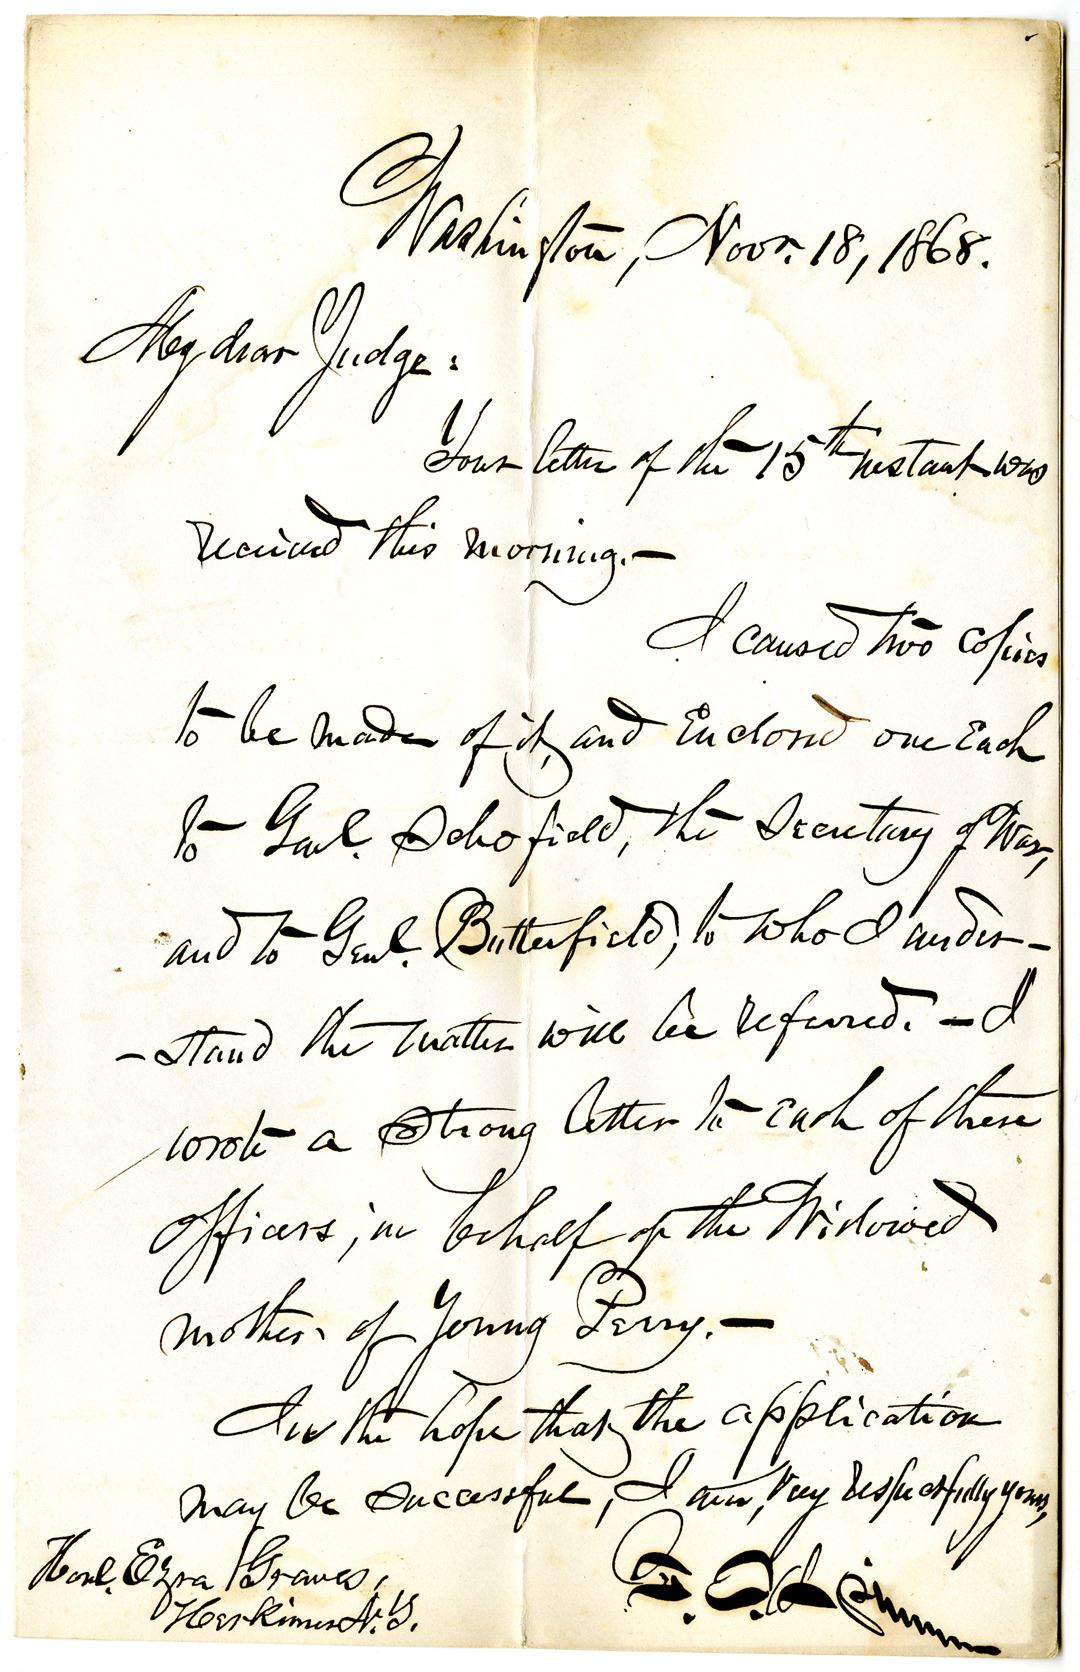 Washington, Novr. 18, 1868.
My dear Judge:
Your letter of the 15th instant was
received this morning.—
I caused two copies
to be made of it, and Enclosed one Each
to Genl. Schofield, the Secretary of War,
and to Genl. Butterfield, to who I under-
-stand the matter will be referred. — I
wrote a strong letter to Each of these
officers, in behalf of the Widowed
mother of Young Perry.—
In the hope that the application
may be successful, I am, very respectfully yours,
Honl. Ezra Graves,
Herkimer N.Y.